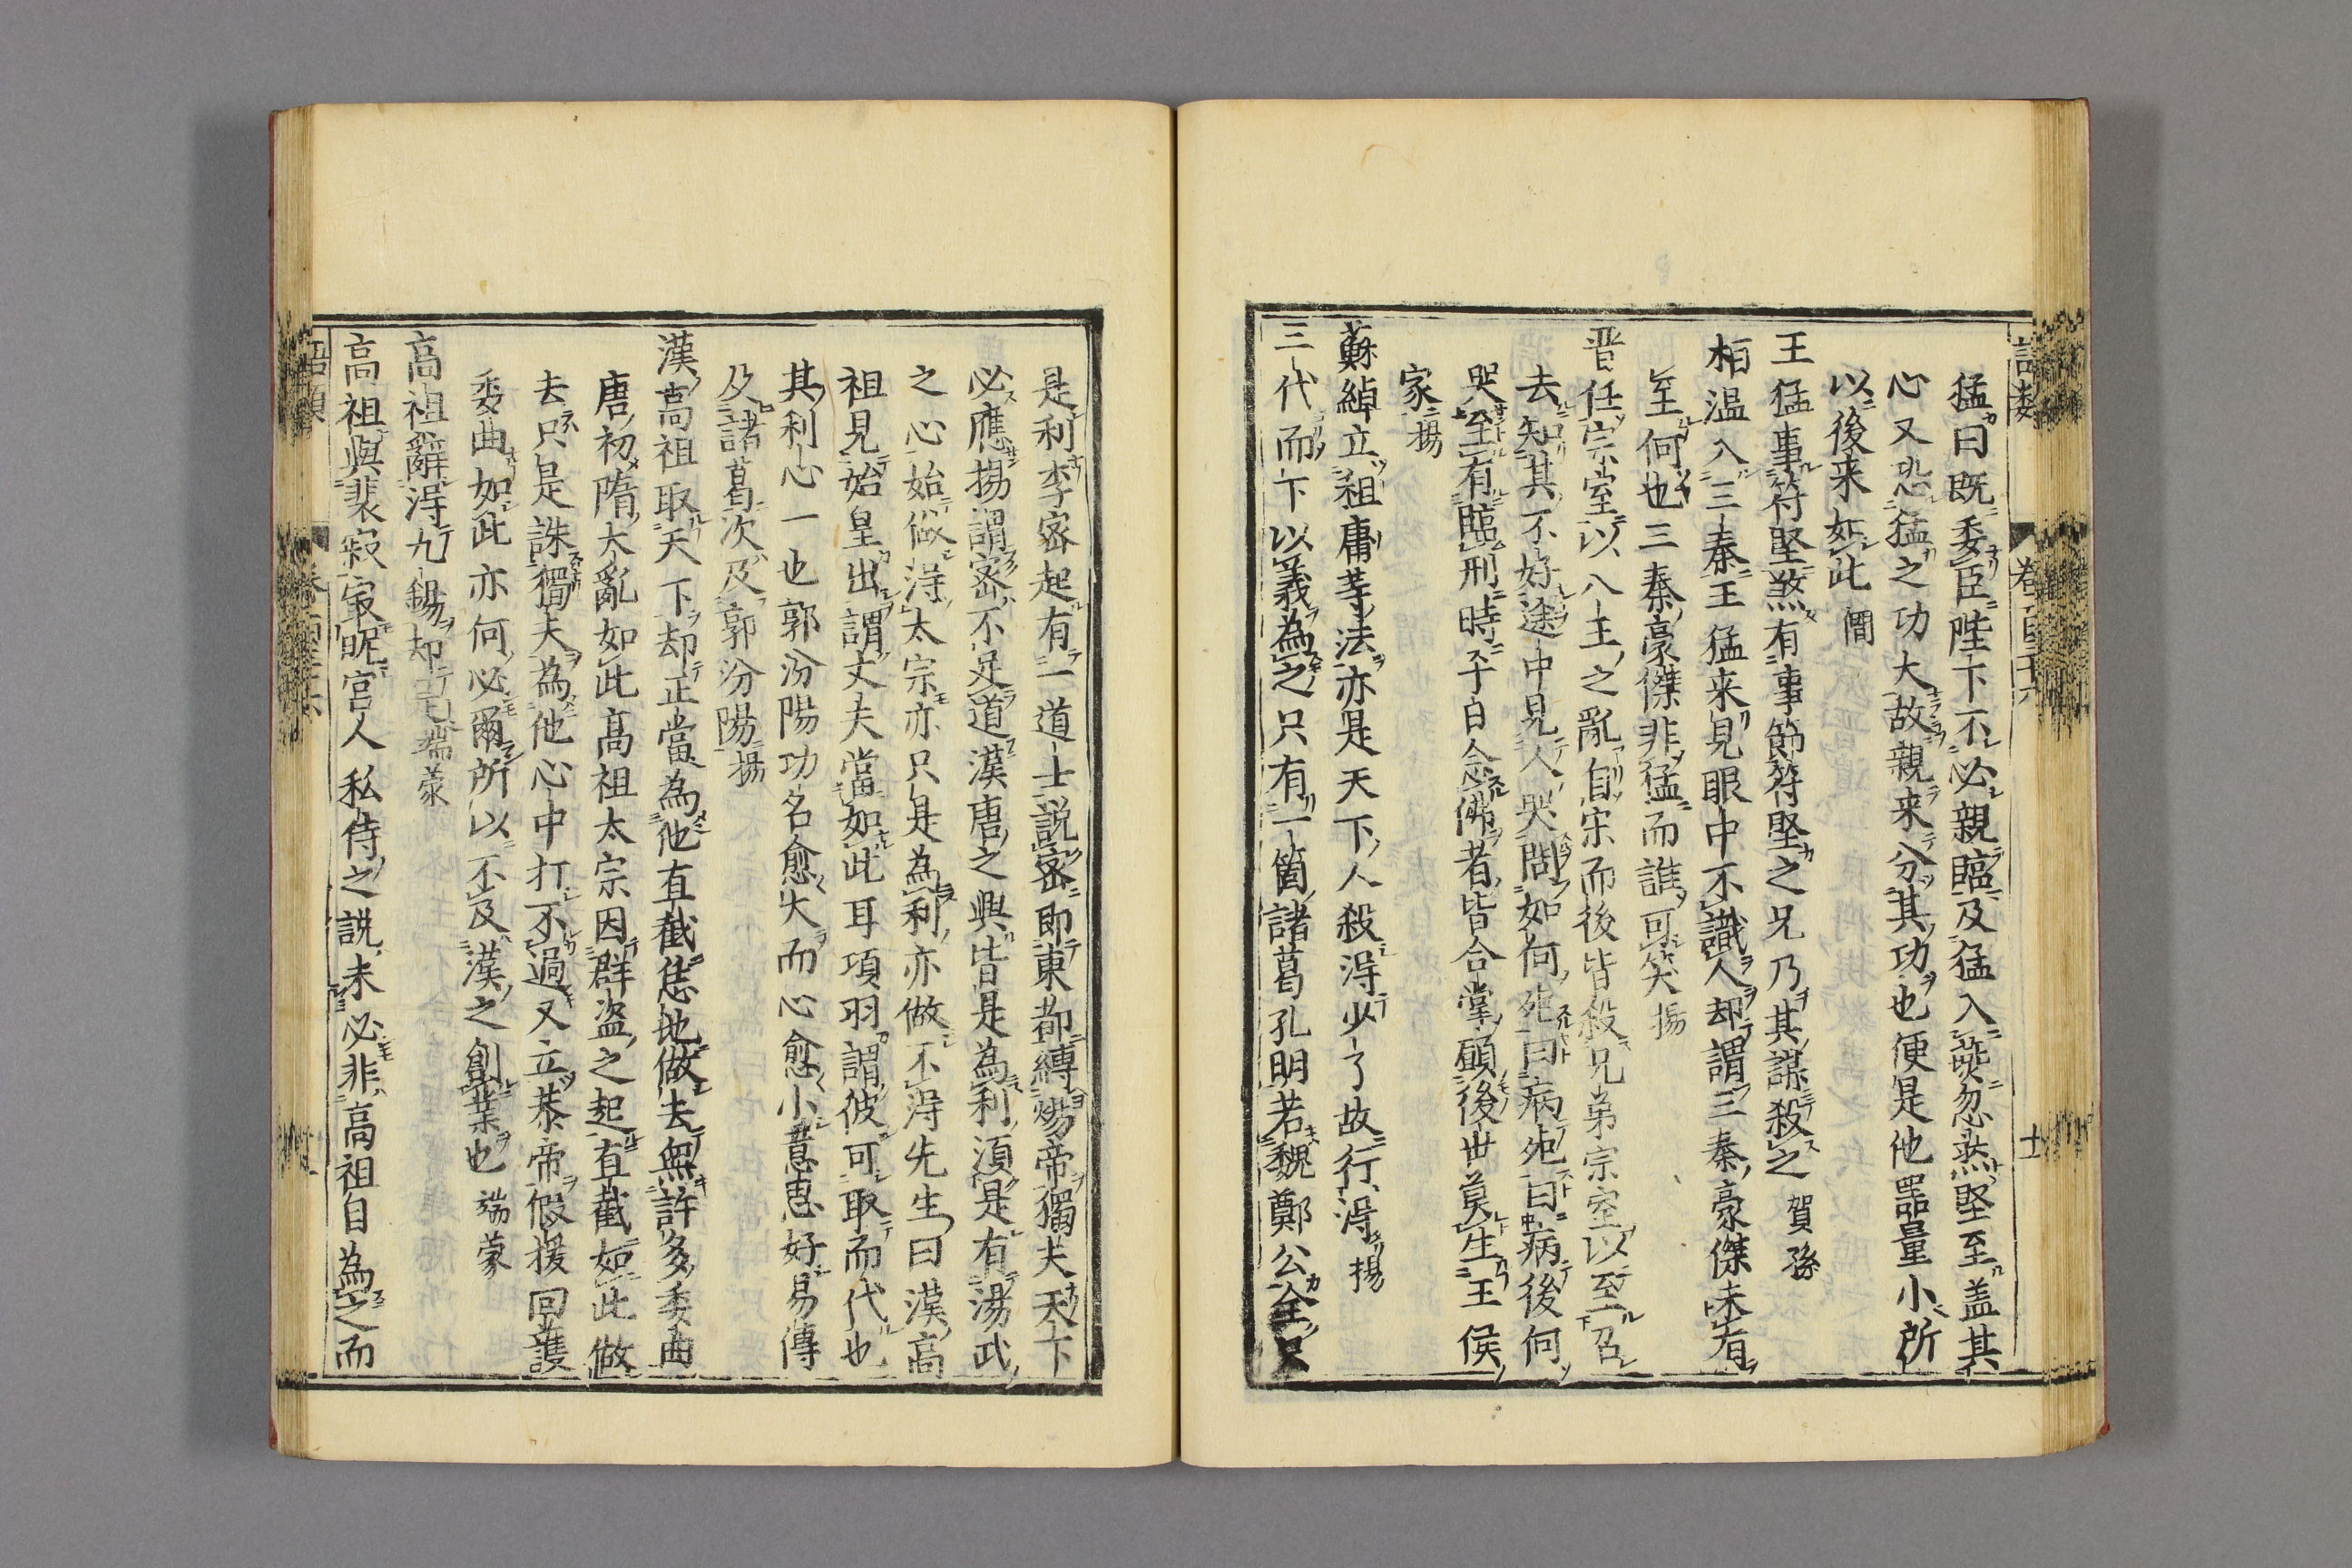 猛曰既委臣陛下不必親臨及猛入燕忽然堅至盖其
心又恐猛之功大故親来分其功也便是他噐量小所
以後来如此 僩
王猛事苻堅煞有事節苻堅之兄乃其謀殺之 賀孫
桓温入三秦王猛来見眼中不識人却謂三秦豪傑未有
至何也三秦豪傑非猛而誰可笑 揚
晋任宗室以八王之亂自宋而後皆殺兄弟宗室以至召
去知其不好途中見人哭問如何死曰病死曰病後何
哭至有臨刑時平日念佛者皆合掌願後世莫生王侯
家 揚
蘇綽立租庸等法亦是天下人殺淂少了故行淂 揚
三代而下以義為之只有一箇諸葛孔明若魏鄭公全只
是利李宻起有一道士説宻即東都縛煬帝獨夫天下
必應揚謂宻不足道漢唐之興皆是為利須是有湯武
之心始做淂太宗亦只是為利亦做不淂先生曰漢高
祖見始皇出謂丈夫當如此耳項羽謂彼可取而代也
其利心一也郭汾陽功名愈大而心愈小意思好易傳
及諸葛次及郭汾陽 揚
漢高祖取天下却正當為他直截恁地做去無許多委曲
唐初隋大亂如此高祖太宗因群盗之起直截如此做
去只是誅獨夫為他心中打不過又立恭帝假援回護
委曲如此亦何必爾所以不及漢之創業也 端蒙
高祖辭淂九錫却是 端蒙
高祖與裴寂冣昵宫人私侍之説未必非高祖自為之而
語類
卷百三十六